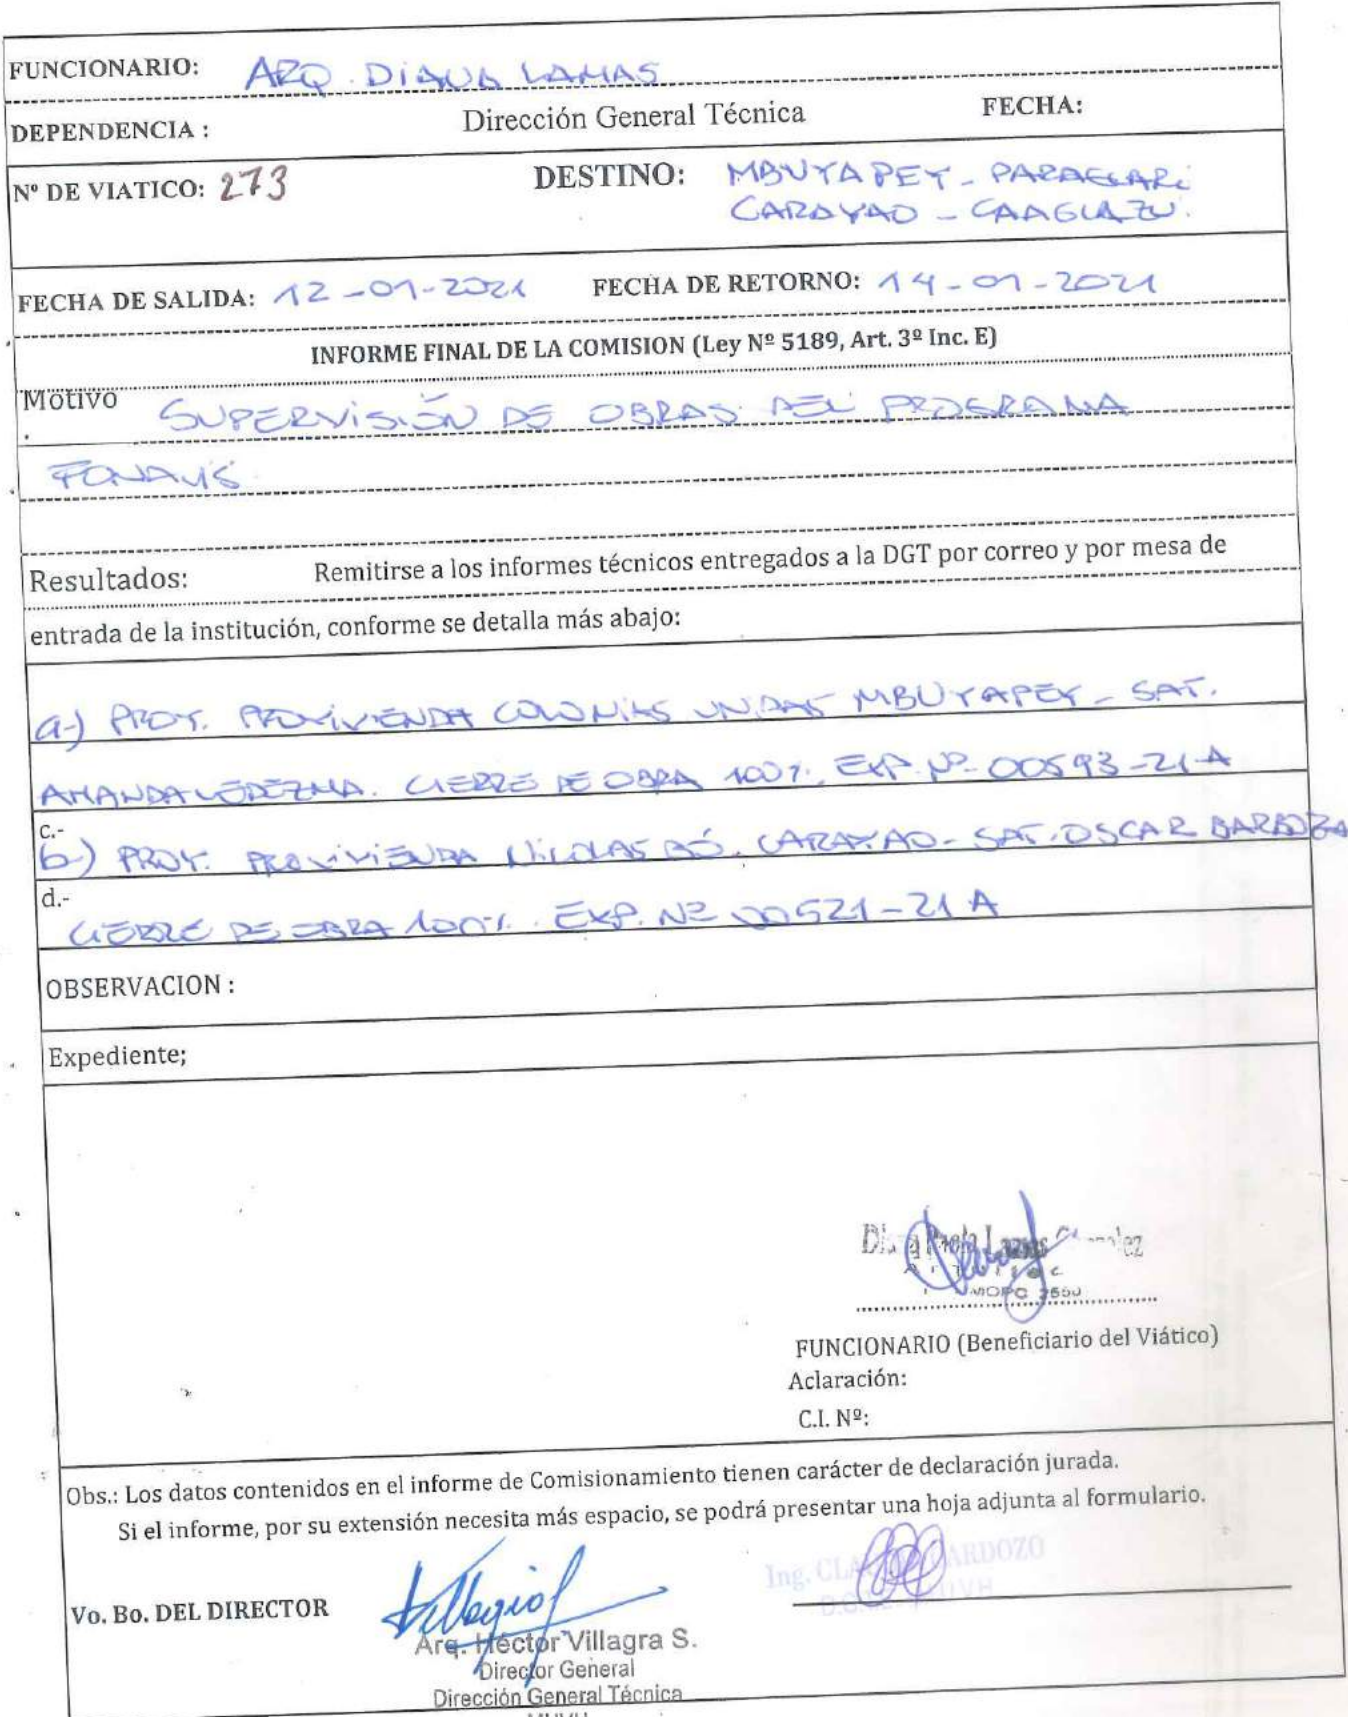 FUNCIONARIO: ARQ. DIANA LAMAS
DEPENDENCIA : Dirección General Técnica FECHA:
Nº DE VIATICO: 273 DESTINO: MBUYAPEY - PARAGUARI
CARAYAO - CAAGUAZU.
FECHA DE SALIDA: 12-01-2021 FECHA DE RETORNO: 14-01-2021
INFORME FINAL DE LA COMISION (Ley Nº 5189, Art. 3º Inc. E)
Motivo SUPERVISIÓN DE OBRAS DEL PROGRAMA
.
FONAVIS
Resultados: Remitirse a los informes técnicos entregados a la DGT por correo y por mesa de
entrada de la institución, conforme se detalla más abajo:
a-) PROY. PROVIVIENDA COLONIAS UNIDAS MBUYAPEY - SAT.
AMANDA LEDEZMA. CIERRE DE OBRA 100%. EXP. Nº 00593-21-A
c.-
b-) PROY. PROVIVIENDA NICOLAS BÓ. CARAYAO - SAT. OSCAR BARBOZA
d.-
CIERRE DE OBRA 100%. EXP. Nº 00521-21 A
OBSERVACION :
Expediente;
MOPC
FUNCIONARIO (Beneficiario del Viático)
Aclaración:
C.I. Nº:
Obs.: Los datos contenidos en el informe de Comisionamiento tienen carácter de declaración jurada.
Si el informe, por su extensión necesita más espacio, se podrá presentar una hoja adjunta al formulario.
Ing. CARDOZO
Vo. Bo. DEL DIRECTOR
Arq. Héctor Villagra S.
Director General
Dirección General Técnica